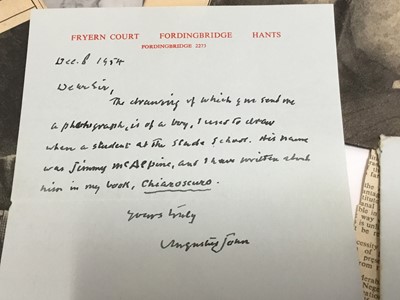 FRYERN COURT FORDINGBRIDGE HANTS
FORDINGBRIDGE 2273
Dec. 8 1954
Dear Sir,
The drawing of which you send me
a photograph, is of a boy, I used to draw
when a student at the Slade School. His name
was Jimmy McAlpine, and I have written about
him in my book, Chiaroscuro.
Yours truly
Augustus John